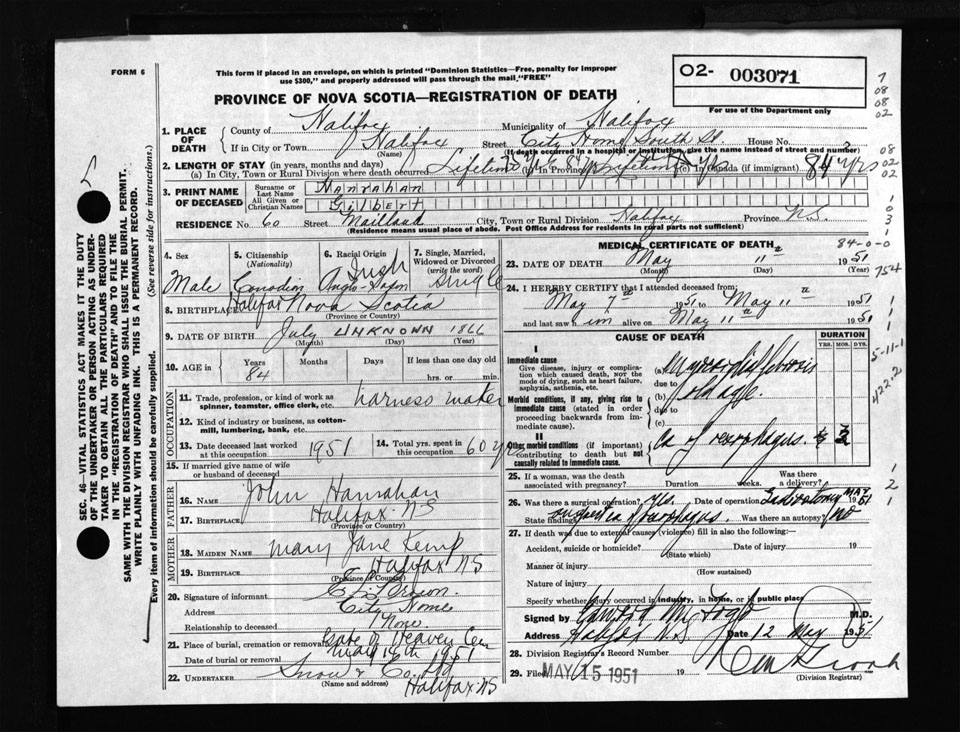 FORM 6
This form if placed in an envelope, on which is printed "Dominion Statistics—Free, penalty for improper
use $300," and properly addressed will pass through the mail "FREE"
O2- 003071
For use of the Department only
PROVINCE OF NOVA SCOTIA—REGISTRATION OF DEATH
1. PLACE OF DEATH
County of Halifax Municipality of Halifax
If in City or Town Halifax (Name) Street City Home South St. House No.
(If death occurred in a hospital or institution, give the name instead of street and number)
2. LENGTH OF STAY (in years, months and days)
(a) In City, Town or Rural Division where death occurred Lifetime (b) In Province (c) In Canada (if immigrant) 84 yrs
3. PRINT NAME OF DECEASED
Surname or Last Name Hanrahan
All Given or Christian Names Gilbert
RESIDENCE No. 60 Street Maitland City, Town or Rural Division Halifax Province N.S.
(Residence means usual place of abode. Post Office Address for residents in rural parts not sufficient)
4. Sex Male
5. Citizenship (Nationality) Canadian
6. Racial Origin Irish Anglo-Saxon
7. Single, Married, Widowed or Divorced (write the word) Single
8. BIRTHPLACE Halifax Nova Scotia
(Province or Country)
9. DATE OF BIRTH July UNKNOWN 1866
(Month) (Day) (Year)
10. AGE in Years 84 Months Days If less than one day old
hrs. or min.
OCCUPATION
11. Trade, profession, or kind of work as spinner, teamster, office clerk, etc. harness maker
12. Kind of industry or business, as cotton-mill, lumbering, bank, etc.
13. Date deceased last worked at this occupation 1951
14. Total yrs. spent in this occupation 60 yrs
15. If married give name of wife or husband of deceased
FATHER
16. Name John Hanrahan
17. Birthplace Halifax NS
(Province or Country)
MOTHER
18. Maiden Name Mary Jane Kemp
19. Birthplace Halifax NS
(Province or Country)
20. Signature of informant
Address City Home
Relationship to deceased None
21. Place of burial, cremation or removal Gate of Heaven Cem
Date of burial or removal May 14th 1951
22. UNDERTAKER Snow & Co. Ltd
(Name and address) Halifax NS
MEDICAL CERTIFICATE OF DEATH
84-0-0
23. DATE OF DEATH May 11th 1951
(Month) (Day) (Year)
24. I HEREBY CERTIFY that I attended deceased from:
May 7th 1951 to May 11th 1951
and last saw him alive on May 11th 1951
CAUSE OF DEATH
DURATION
YRS. MOS. DYS.
I
Immediate cause
Give disease, injury or complication which caused death, not the mode of dying, such as heart failure, asphyxia, asthenia, etc.
(a) Myocardial fibrosis
due to
Morbid conditions, if any, giving rise to immediate cause (stated in order proceeding backwards from immediate cause).
(b) old age
due to
(c)
II
Other morbid conditions (if important) contributing to death but not causally related to immediate cause.
Ca of oesophagus.
25. If a woman, was the death associated with pregnancy? Duration weeks. Was there a delivery?
26. Was there a surgical operation? yes. Date of operation MAY 1951
State findings oesophagus. Was there an autopsy? no
27. If death was due to external causes (violence) fill in also the following:—
Accident, suicide or homicide? Date of injury 19
(State which)
Manner of injury
(How sustained)
Nature of injury
Specify whether injury occurred in industry, in home, or in public place
Signed by M.D.
Address Halifax N.S. Date 12 May 1951
28. Division Registrar's Record Number
29. Filed MAY 15 1951 19
(Division Registrar)
SEC. 46—VITAL STATISTICS ACT MAKES IT THE DUTY
OF THE UNDERTAKER OR PERSON ACTING AS UNDERTAKER TO OBTAIN ALL THE PARTICULARS REQUIRED
IN THE "REGISTRATION OF DEATH" AND TO FILE THE
SAME WITH THE DIVISION REGISTRAR WHO SHALL ISSUE THE BURIAL PERMIT.
WRITE PLAINLY WITH UNFADING INK. THIS IS A PERMANENT RECORD.
Every item of information should be carefully supplied. (See reverse side for instructions.)
7
08
08
02
08
02
02
754
5-11-1
422-2